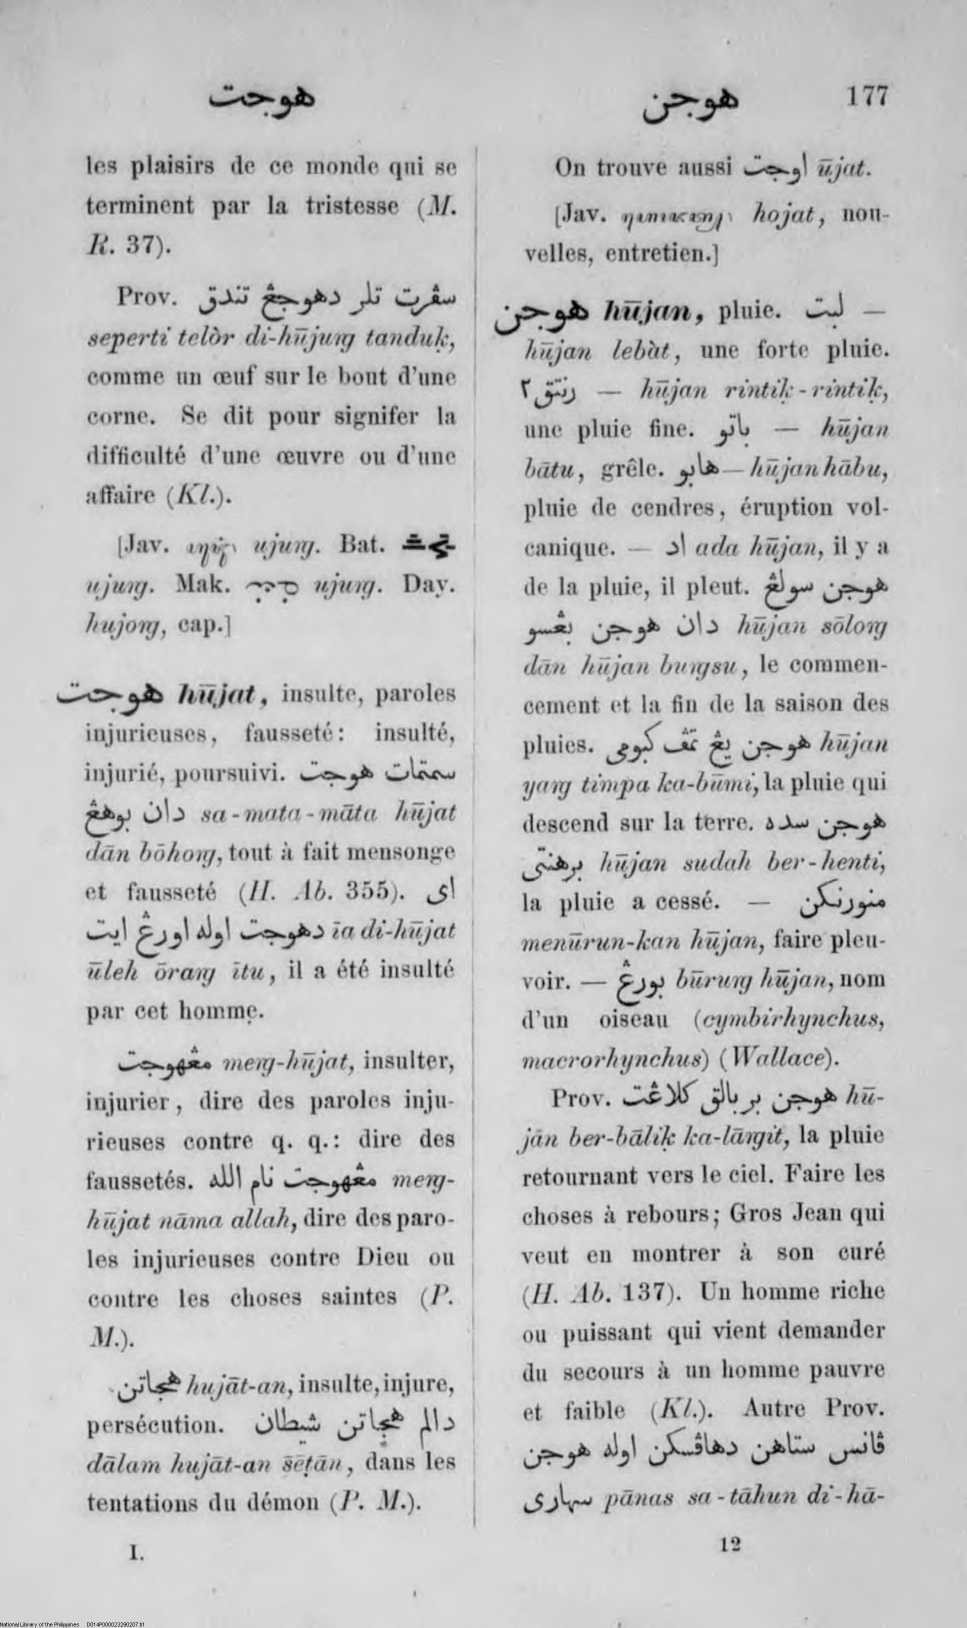 هوجت
هوجن
177
les plaisirs de ce monde qui se
terminent par la tristesse (M.
R. 37).
Prov. سڤرت تلر دهوجڠ تندق
seperti telòr di-hūjuṉg tanduḳ,
comme un œuf sur le bout d'une
corne. Se dit pour signifer la
difficulté d'une œuvre ou d'une
affaire (Kl.).
[Jav. ujuṉg. Bat.
ujuṉg. Mak. ujuṉg. Day.
hujoṉg, cap.]
هوجت hūjat, insulte, paroles
injurieuses, fausseté: insulté,
injurié, poursuivi. سمتمات هوجت
دان بوهڠ sa-mata-māta hūjat
dān bōhoṉg, tout à fait mensonge
et fausseté (H. Ab. 355). اي
دهوجت اوله اورڠ ايت īa di-hūjat
ūleh ōraṉg ītu, il a été insulté
par cet homme.
مڠهوجت meṉg-hūjat, insulter,
injurier, dire des paroles inju-
rieuses contre q. q.: dire des
faussetés. مڠهوجت نام الله meṉg-
hūjat nāma allah, dire des paro-
les injurieuses contre Dieu ou
contre les choses saintes (P.
M.).
هجاتن hujāt-an, insulte, injure,
persécution. دالم هجاتن شيطان
dālam hujāt-an šēṭān, dans les
tentations du démon (P. M.).
I.
On trouve aussi اوجت ūjat.
[Jav. hojat, nou-
velles, entretien.]
هوجن hūjan, pluie. لبت —
hūjan lebàt, une forte pluie.
رنتق٢ — hūjan rintiḳ-rintiḳ,
une pluie fine. باتو — hūjan
bātu, grêle. هابو — hūjan hābu,
pluie de cendres, éruption vol-
canique. — اد ada hūjan, il y a
de la pluie, il pleut. هوجن سولڠ
دان هوجن بڠسو hūjan sōloṉg
dān hūjan buṉgsu, le commen-
cement et la fin de la saison des
pluies. هوجن يڠ تمڤ كبومي hūjan
yaṉg timpa ka-būmi, la pluie qui
descend sur la terre. هوجن سده
برهنتي hūjan sudah ber-henti,
la pluie a cessé. — منورنكن
menūrun-kan hūjan, faire pleu-
voir. — بورڠ būruṉg hūjan, nom
d'un oiseau (cymbirhynchus,
macrorhynchus) (Wallace).
Prov. هوجن بربالق كلاڠت hū-
jān ber-bāliḳ ka-lāṉgit, la pluie
retournant vers le ciel. Faire les
choses à rebours; Gros Jean qui
veut en montrer à son curé
(H. Ab. 137). Un homme riche
ou puissant qui vient demander
du secours à un homme pauvre
et faible (Kl.). Autre Prov.
ڤانس ستاهن دهاڤسكن اوله هوجن
سهاري pānas sa-tāhun di-hā-
12
National Library of the Philippines